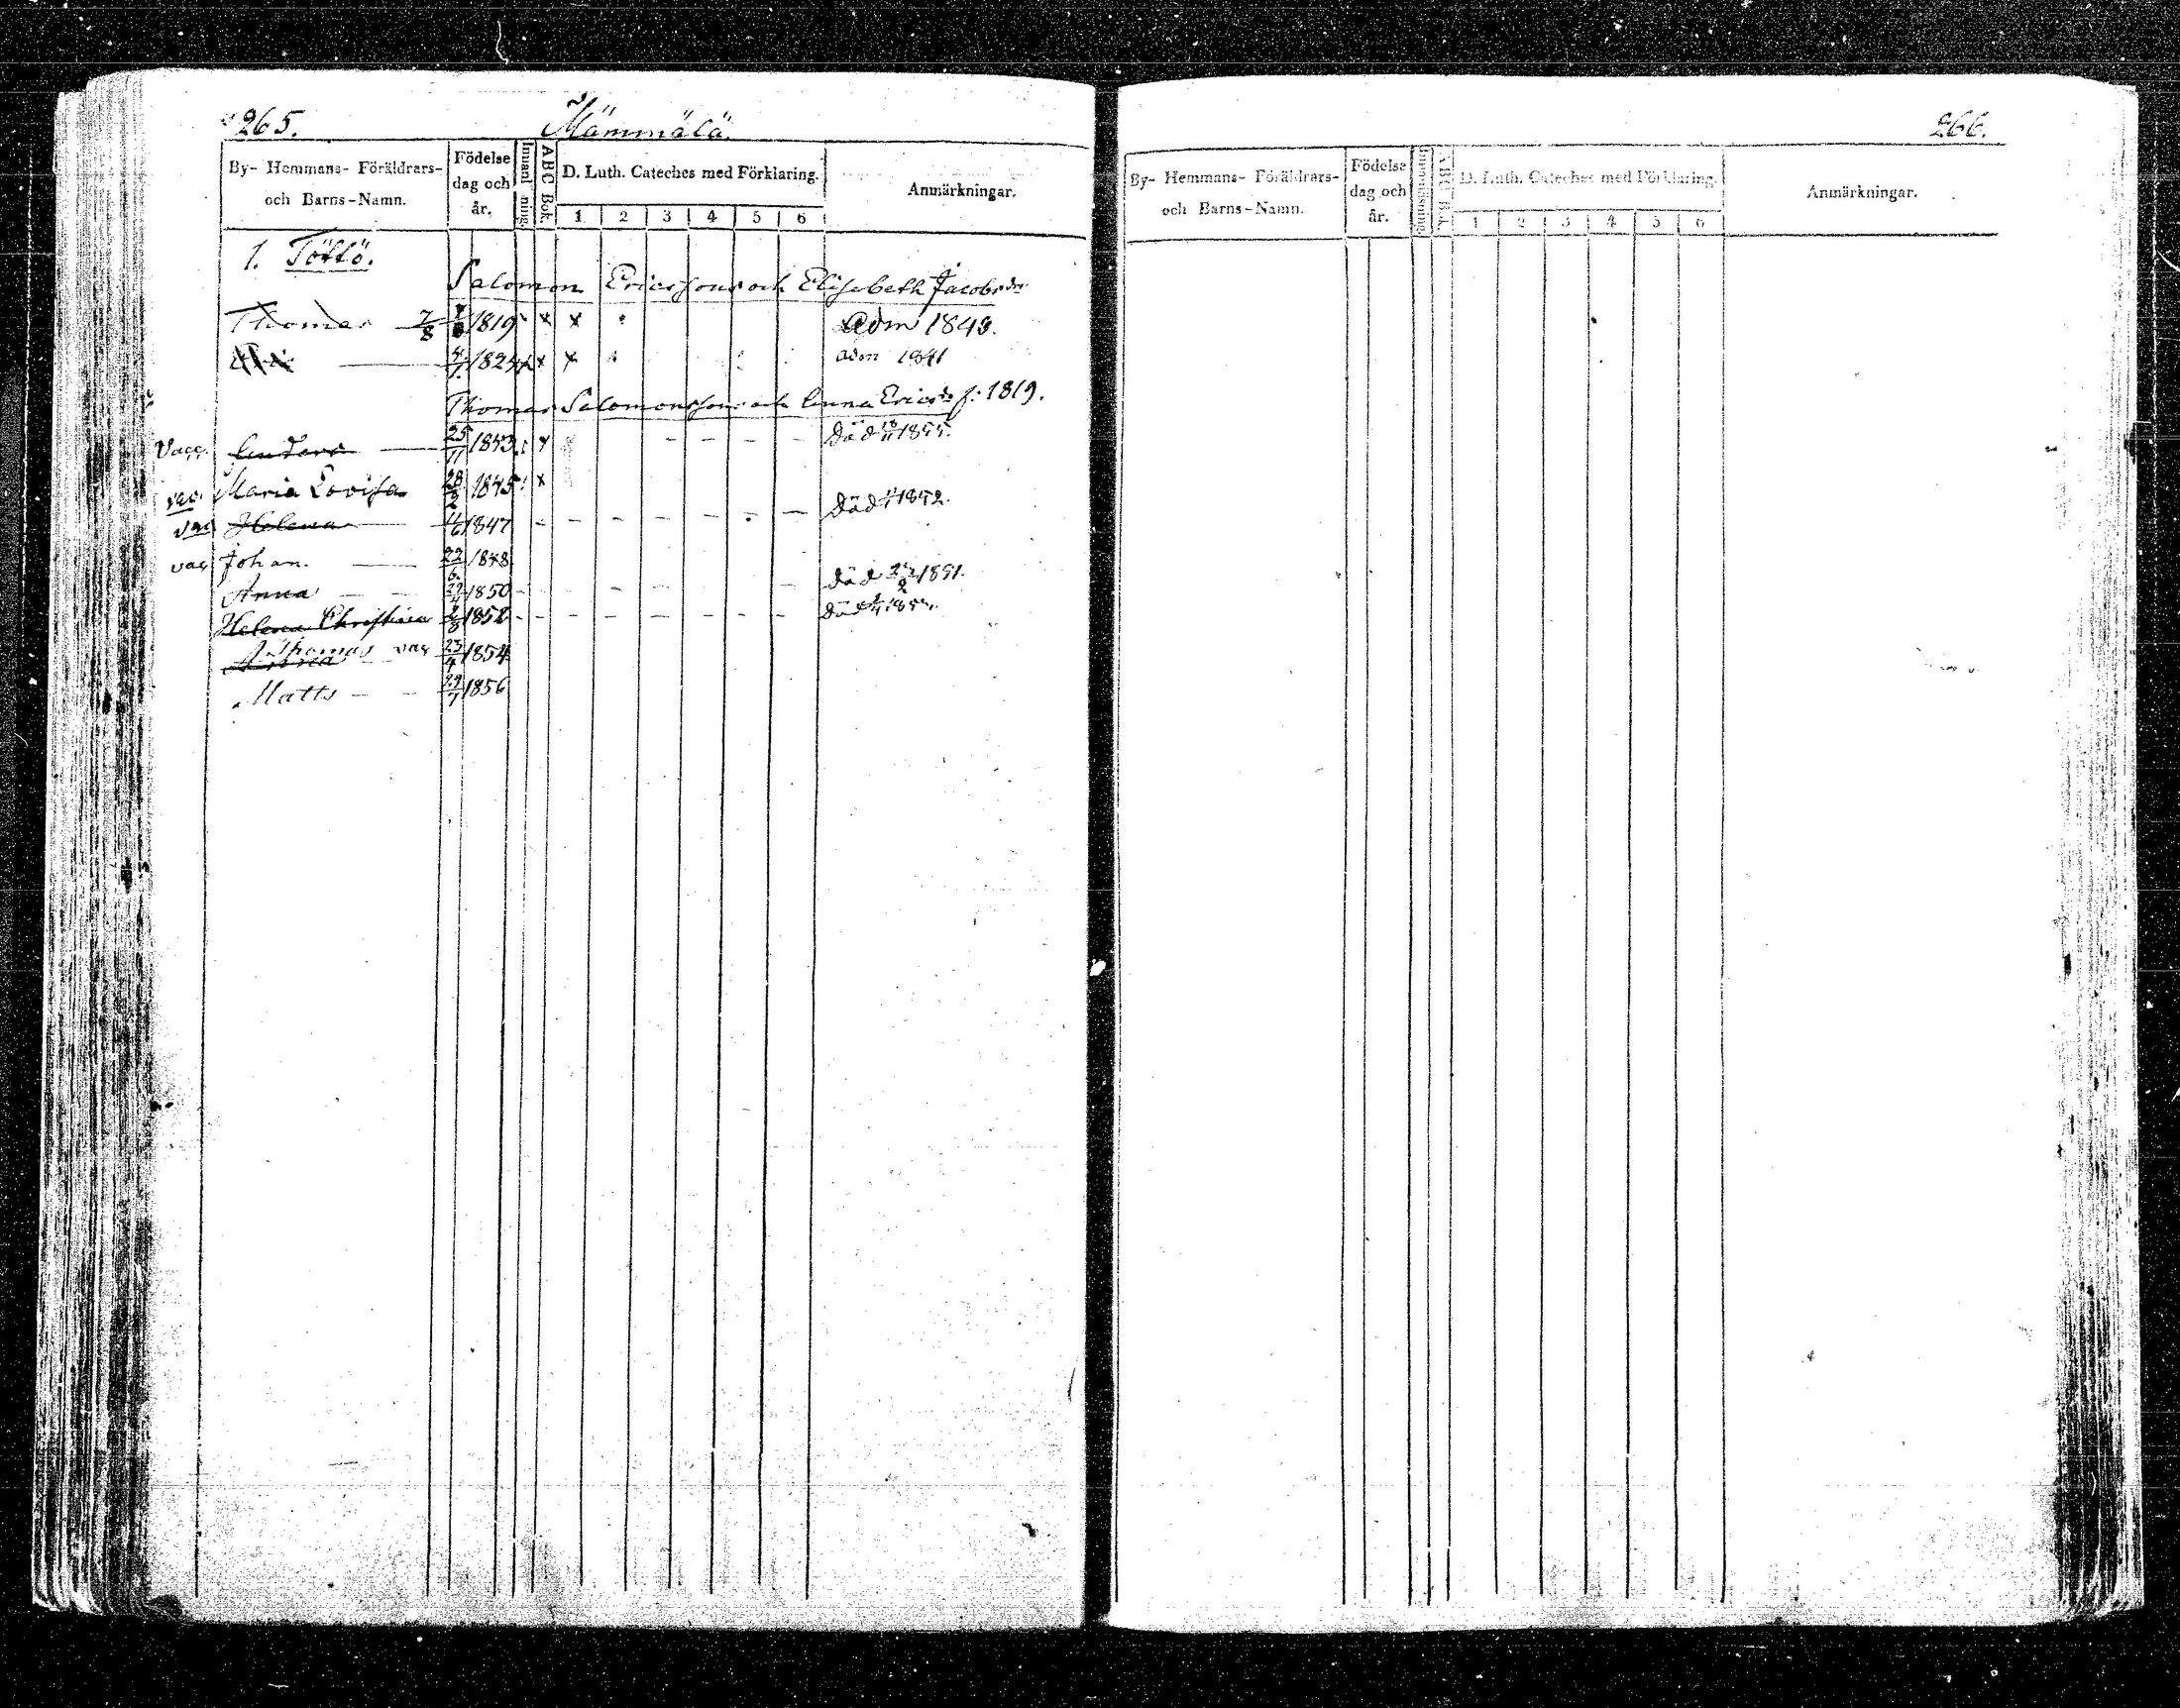 265. Mämmälä.
By- Hemmans- Föräldrars- och Barns-Namn. Födelse dag och år. Innanläsning. ABC Bok. D. Luth. Cateches med Förklaring. 1 2 3 4 5 6 Anmärkningar.
1. Töttö.
Salomon Ericssons och Elisabeth Jacobsdr
Thomas 7/8 1819 x x Adm 1843.
1824 x x x adm 1841
Thomas Salomonssons och Anna Ericsdr f: 1819.
Vacc. Anders 25/11 1843 x Död 18/11 1855.
vac. Maria Lovisa 28/2 1845 x
vac Helena 1847 Död 1852.
vac Johan. 22/6 1848
Anna 1850 Död 1851.
Helena Christina 1852 Död
Thomas vac 23/4 1854
Matts 29/7 1856
266.
By- Hemmans- Föräldrars- och Barns-Namn. Födelse dag och år. Innanläsning. ABC Bok. D. Luth. Cateches med Förklaring. 1 2 3 4 5 6 Anmärkningar.